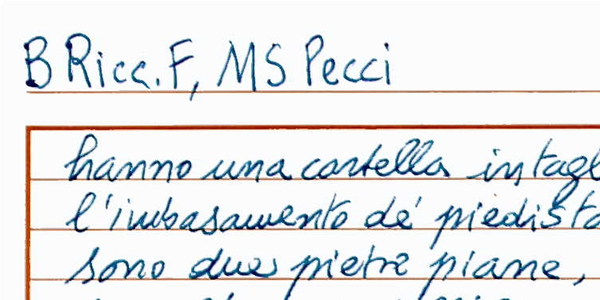 B Ricc. F, MS Pecci
hanno una cartella intagl
l'imbasamento de' piedista
sono due pietre piane,